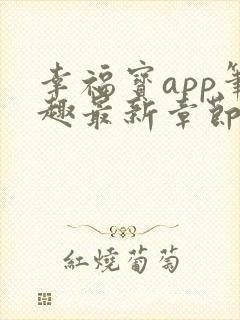 幸福寶app筆
趣最新章節
紅燒葡萄